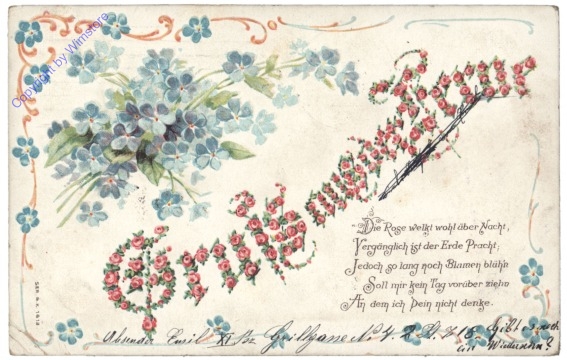 Copyright by Wimstore
Gruß aus
Die Rose welkt wohl über Nacht,
Vergänglich ist der Erde Pracht;
Jedoch so lang noch Blumen blühn
Soll mir kein Tag vorüber ziehn
An dem ich Dein nicht denke.
SER. N.K. 1414
Absender Emil
Gibt es noch
ein Wiedersehn?